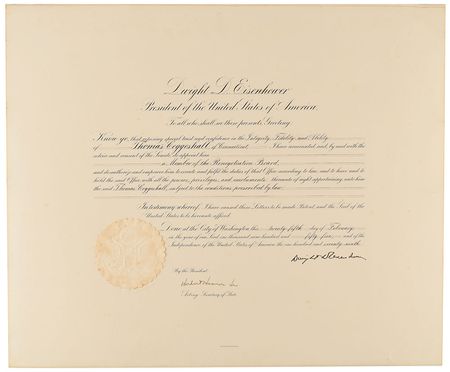 Dwight D. Eisenhower
President of the United States of America,
To all who shall see these presents, Greeting:
Know ye, that reposing special trust and confidence in the Integrity, Fidelity and Ability
of Thomas Coggeshall of Connecticut I have nominated and, by and with the
advice and consent of the Senate, do appoint him
a Member of the Renegotiation Board,
and do authorize and empower him to execute and fulfil the duties of that Office according to law, and to have and to
hold the said Office, with all the powers, privileges, and emoluments thereunto of right appertaining unto him
the said Thomas Coggeshall, subject to the conditions prescribed by law.
In testimony whereof, I have caused these Letters to be made Patent, and the Seal of the
United States to be hereunto affixed.
Done at the City of Washington this twenty-fifth day of February
in the year of our Lord one thousand nine hundred and fifty-five and of the
Independence of the United States of America the one hundred and seventy-ninth.
Dwight D Eisenhower
By the President:
Herbert Hoover Jr
Acting Secretary of State.